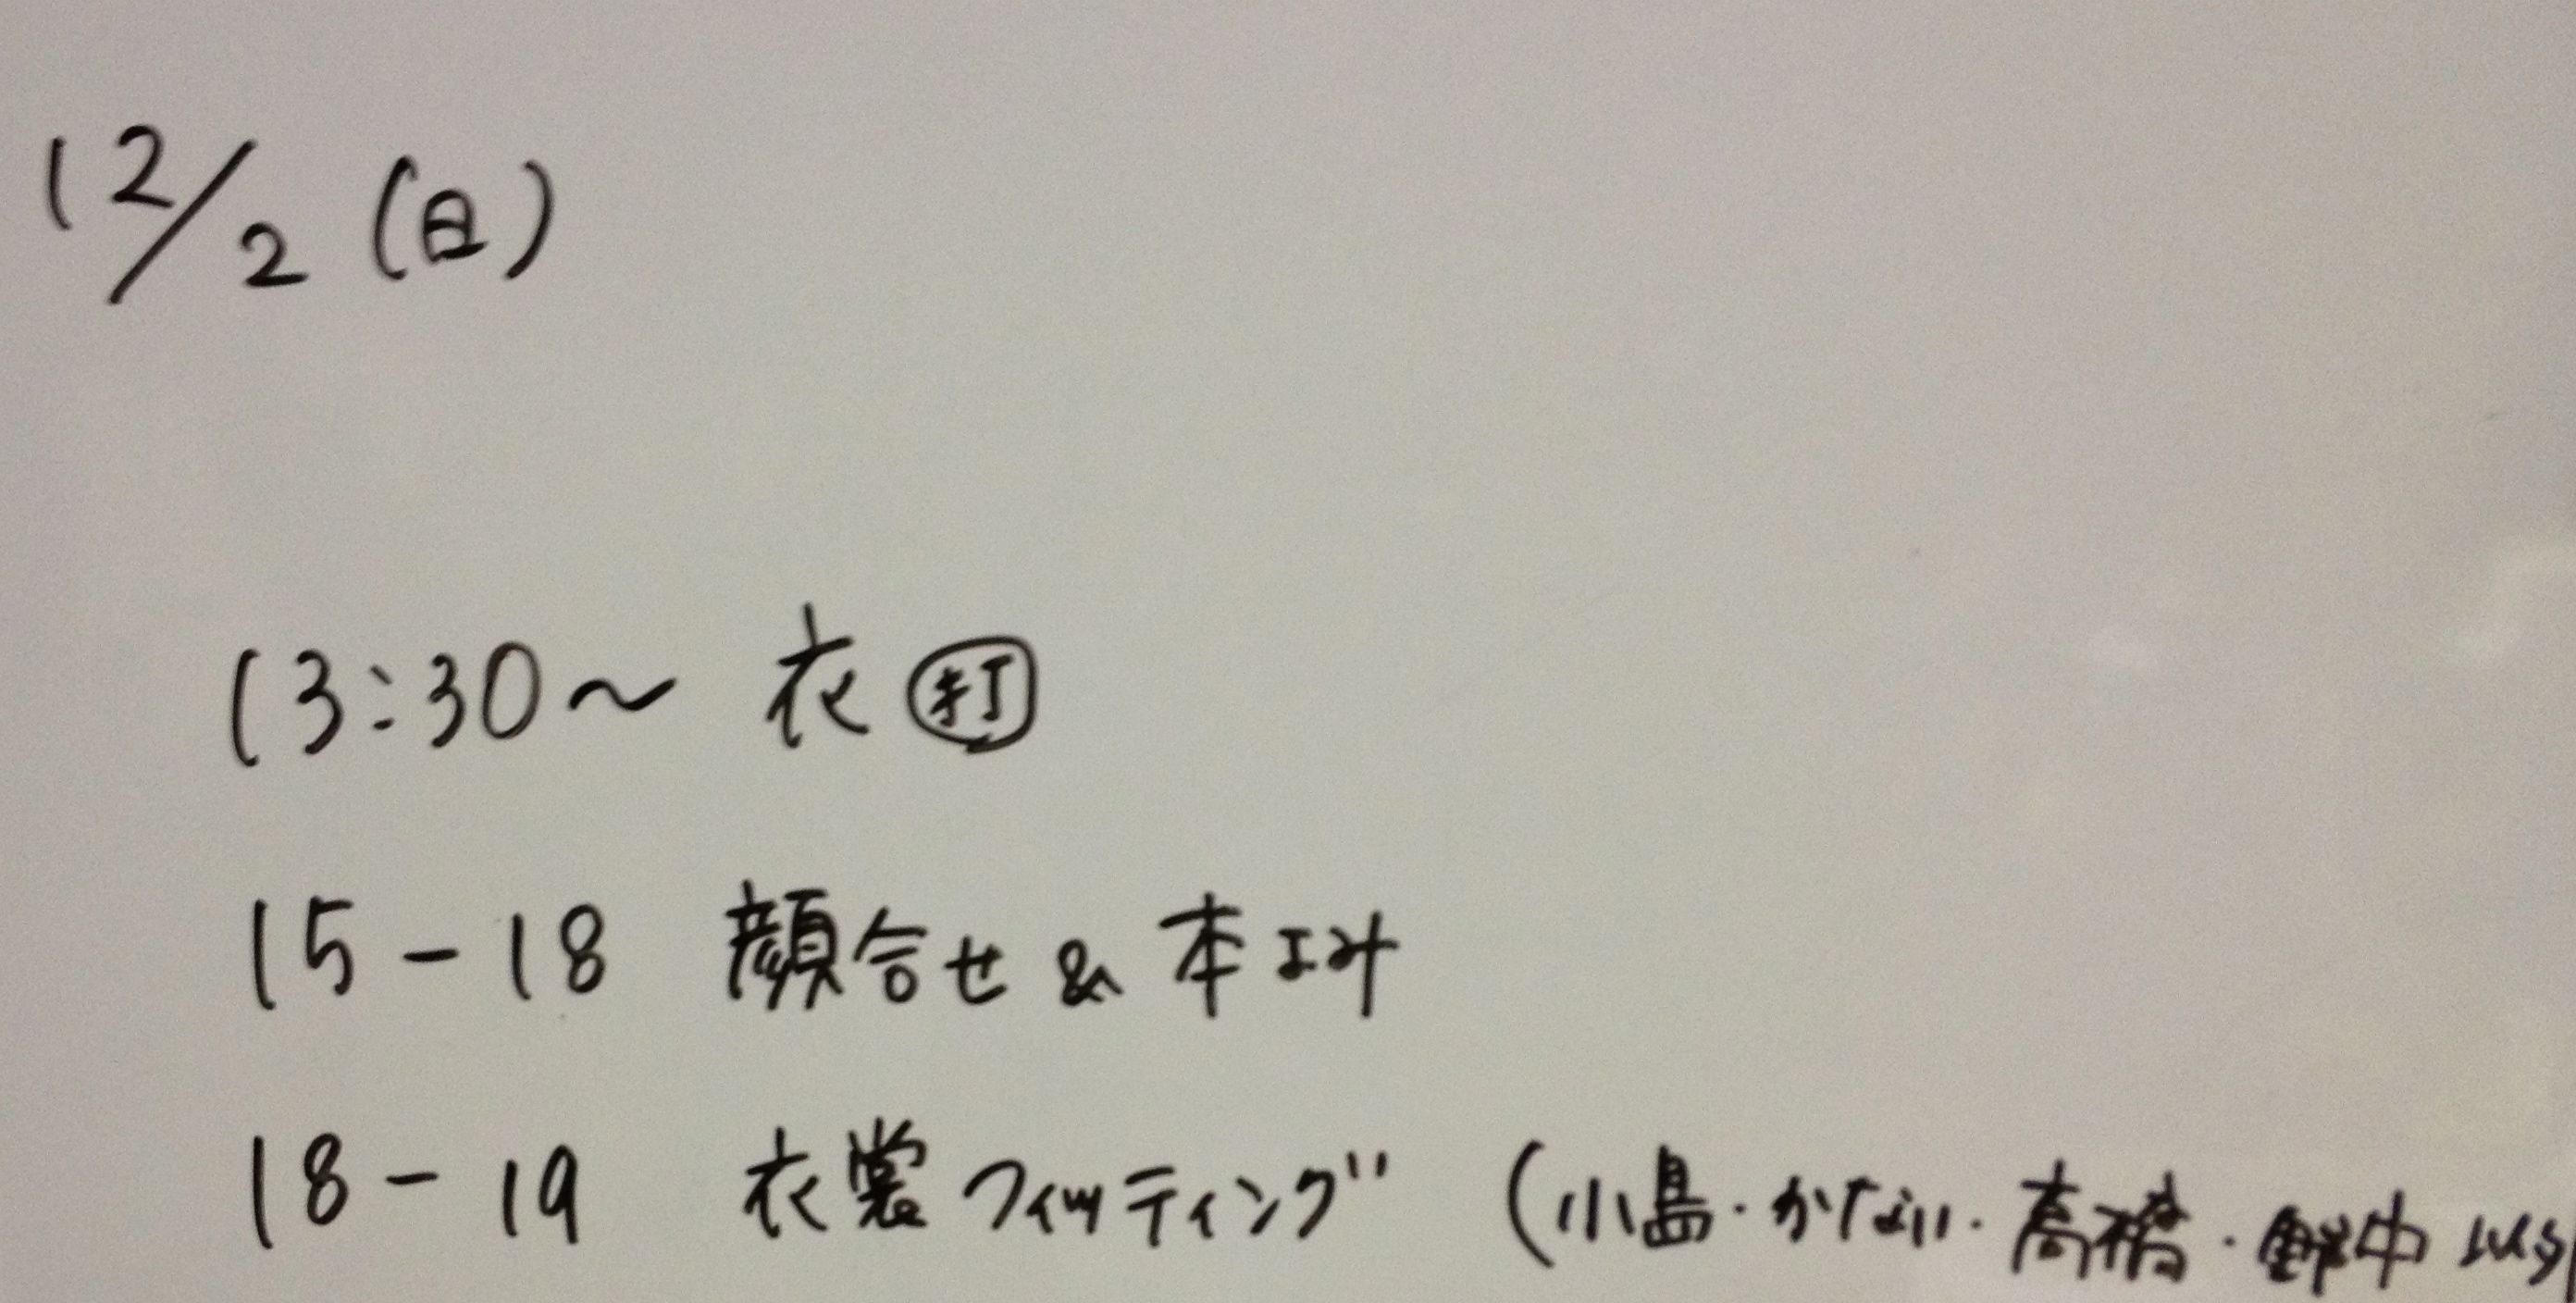 12/2 (日)
13:30〜 衣 打
15-18 顔合せ & 本よみ
18-19 衣裳フィッティング (小島・かない・高橋・野中 以外